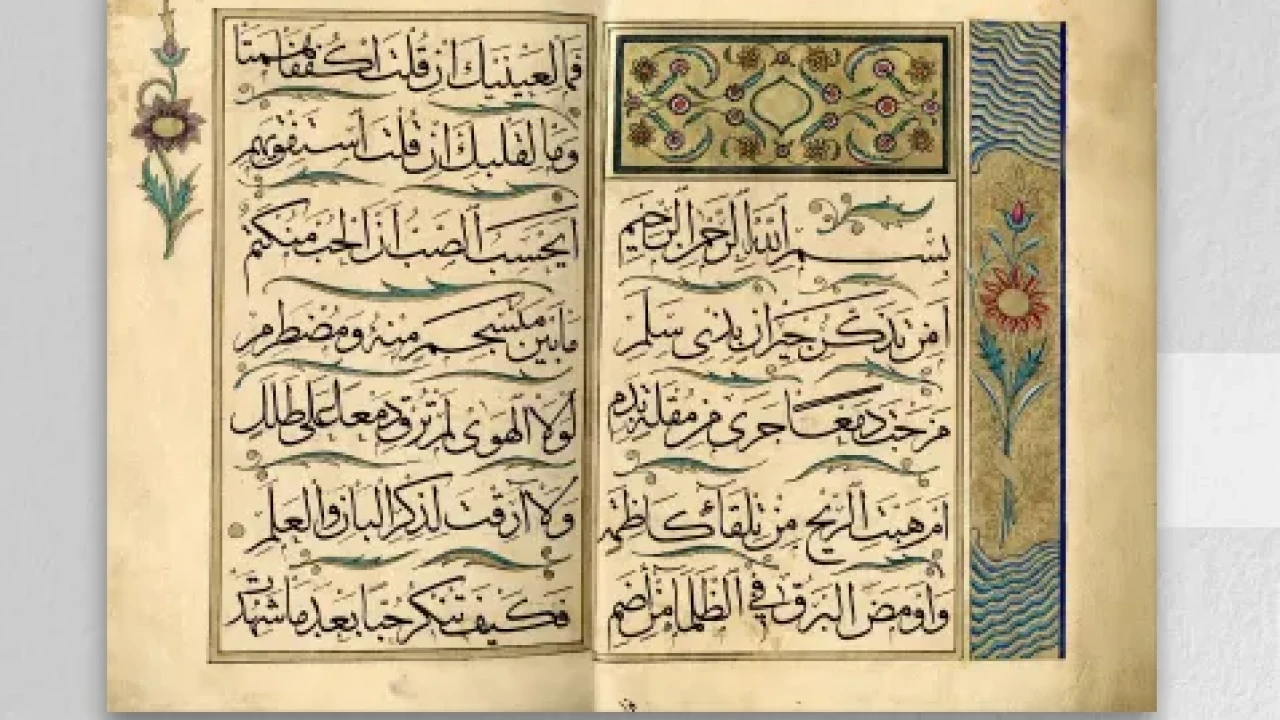 بسم الله الرحمن الرحيم
امن تذكر جيران بذى سلم
مزجت دمعا جرى من مقلة بدم
ام هبت الريح من تلقاء كاظمة
واومض البرق في الظلماء من اضم
فما لعينيك ان قلت اكففا همتا
وما لقلبك ان قلت استفق يهم
ايحسب الصب ان الحب منكتم
ما بين منسجم منه ومضطرم
لولا الهوى لم ترق دمعا على طلل
ولا ارقت لذكر البان والعلم
فكيف تنكر حبا بعد ما شهدت